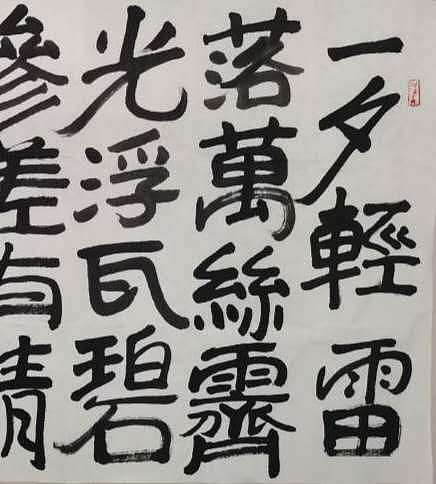 一夕輕雷
落萬絲霽
光浮瓦碧
參差有情